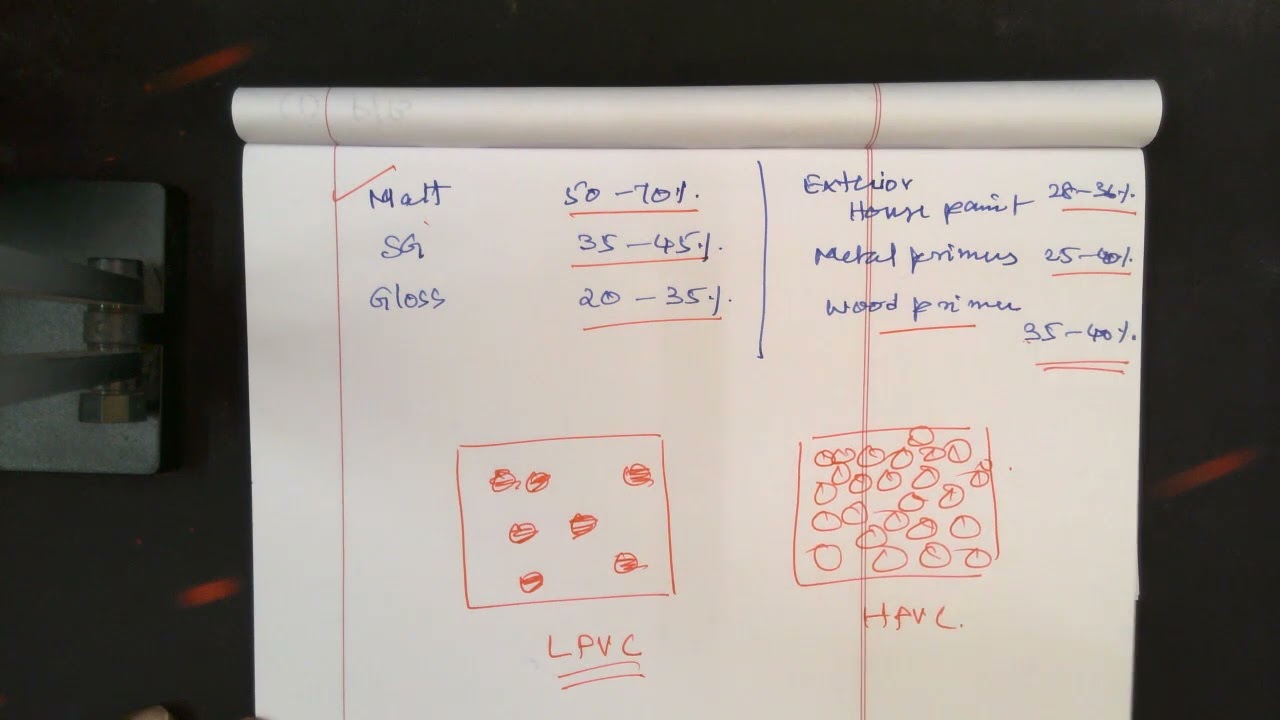 Matt 50-70%.
SG 35-45%.
Gloss 20-35%.
Exterior
House paint 28-36%.
Metal primers 25-40%.
Wood primer
35-40%.
LPVC
HPVC.